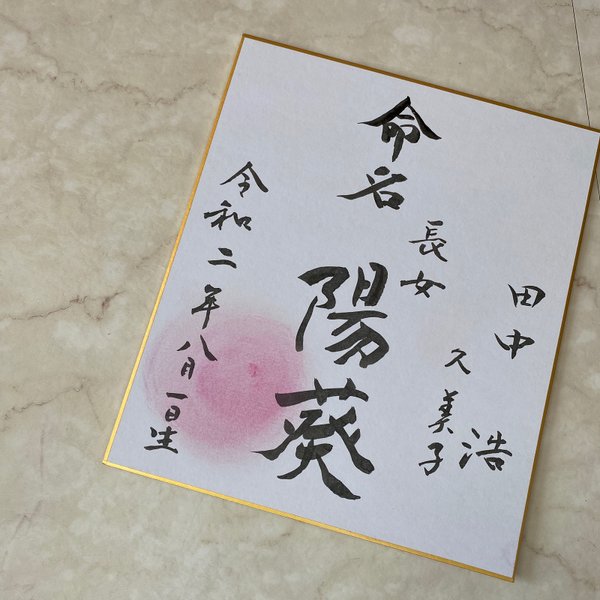 田中 浩
久美子
長女
命名
陽葵
令和二年八月一日生